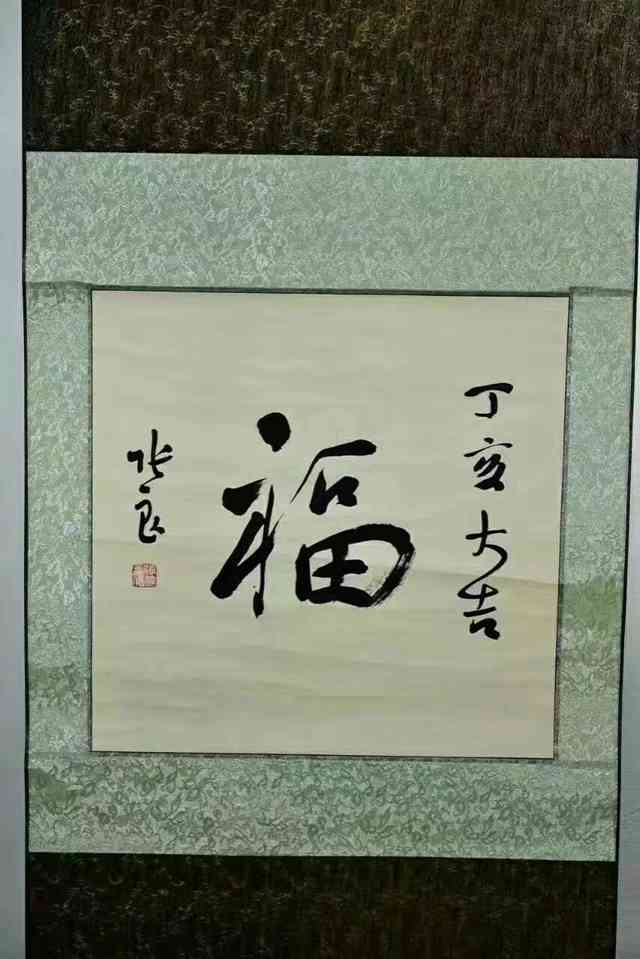 丁亥大吉
福
张良